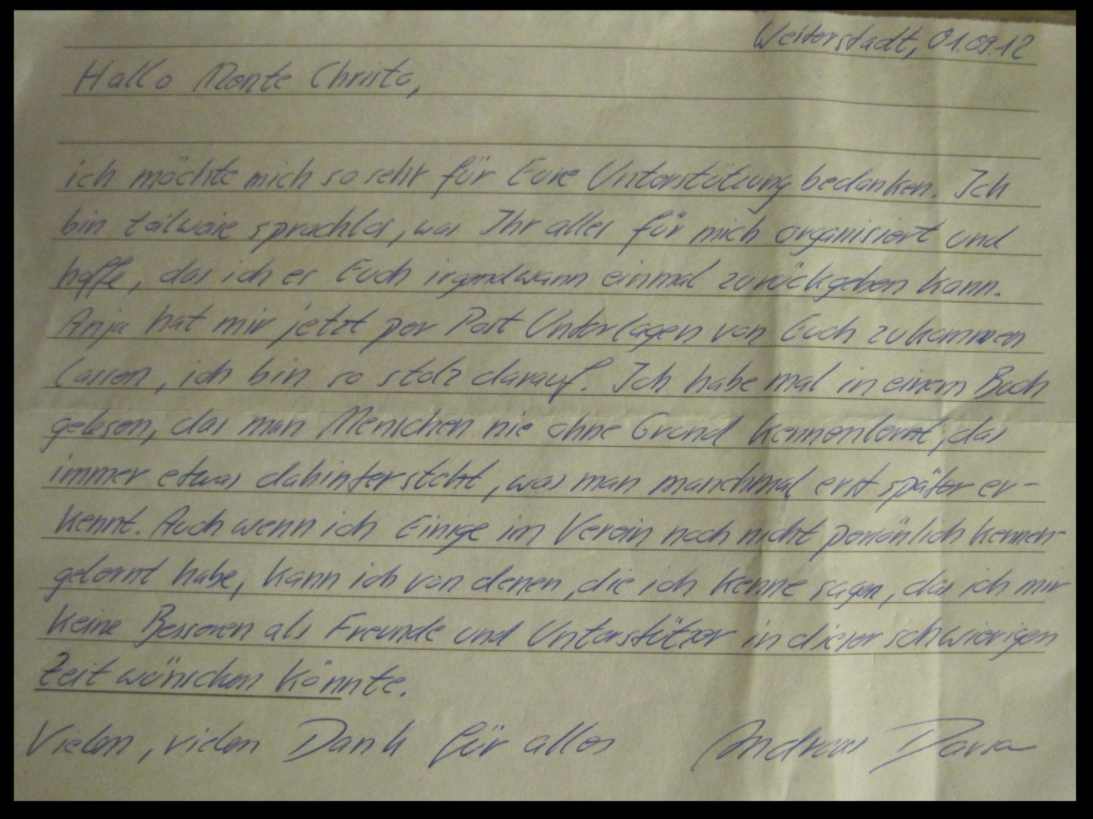 Weiterstadt, 01.09.12
Hallo Monte Christo,
ich möchte mich so sehr für Eure Unterstützung bedanken. Ich
bin teilweise sprachlos, was Ihr alles für mich organisiert und
hoffe, das ich es Euch irgendwann einmal zurückgeben kann.
Anja hat mir jetzt per Post Unterlagen von Euch zukommen
lassen, ich bin so stolz darauf. Ich habe mal in einem Buch
gelesen, das man Menschen nie ohne Grund kennenlernt, das
immer etwas dahintersteht, was man manchmal erst später er-
kennt. Auch wenn ich Einige im Verein noch nicht persönlich kennen-
gelernt habe, kann ich von denen, die ich kenne sagen, das ich mir
keine Besseren als Freunde und Unterstützer in dieser schwierigen
Zeit wünschen könnte.
Vielen, vielen Dank für alles Andreas